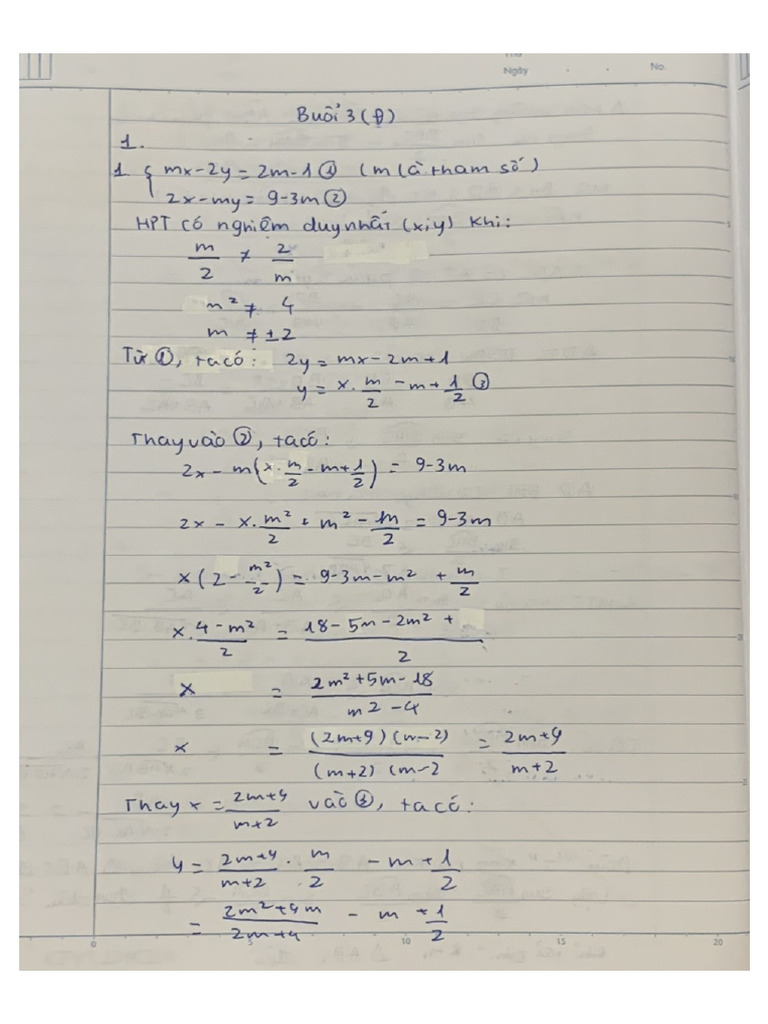 Thứ
Ngày . . No.
Buổi 3 (Đ)
1.
1. { mx - 2y = 2m - 1 ① (m là tham số)
2x - my = 9 - 3m ②
HPT có nghiệm duy nhất (x;y) khi:
m/2 ≠ 2/m
m² ≠ 4
m ≠ ±2
Từ ①, ta có: 2y = mx - 2m + 1
y = x . m/2 - m + 1/2 ③
Thay vào ②, ta có:
2x - m(x . m/2 - m + 1/2) = 9 - 3m
2x - x . m²/2 + m² - 1m/2 = 9 - 3m
x(2 - m²/2) = 9 - 3m - m² + m/2
x . 4 - m²/2 = 18 - 5m - 2m² +/2
x = 2m² + 5m - 18/m² - 4
x = (2m + 9)(m - 2)/(m + 2)(m - 2 = 2m + 9/m + 2
Thay x = 2m + 9/m + 2 vào ③, ta có:
y = 2m + 9/m + 2 . m/2 - m + 1/2
= 2m² + 9m/2m + 4 - m + 1/2
0 10 15 20